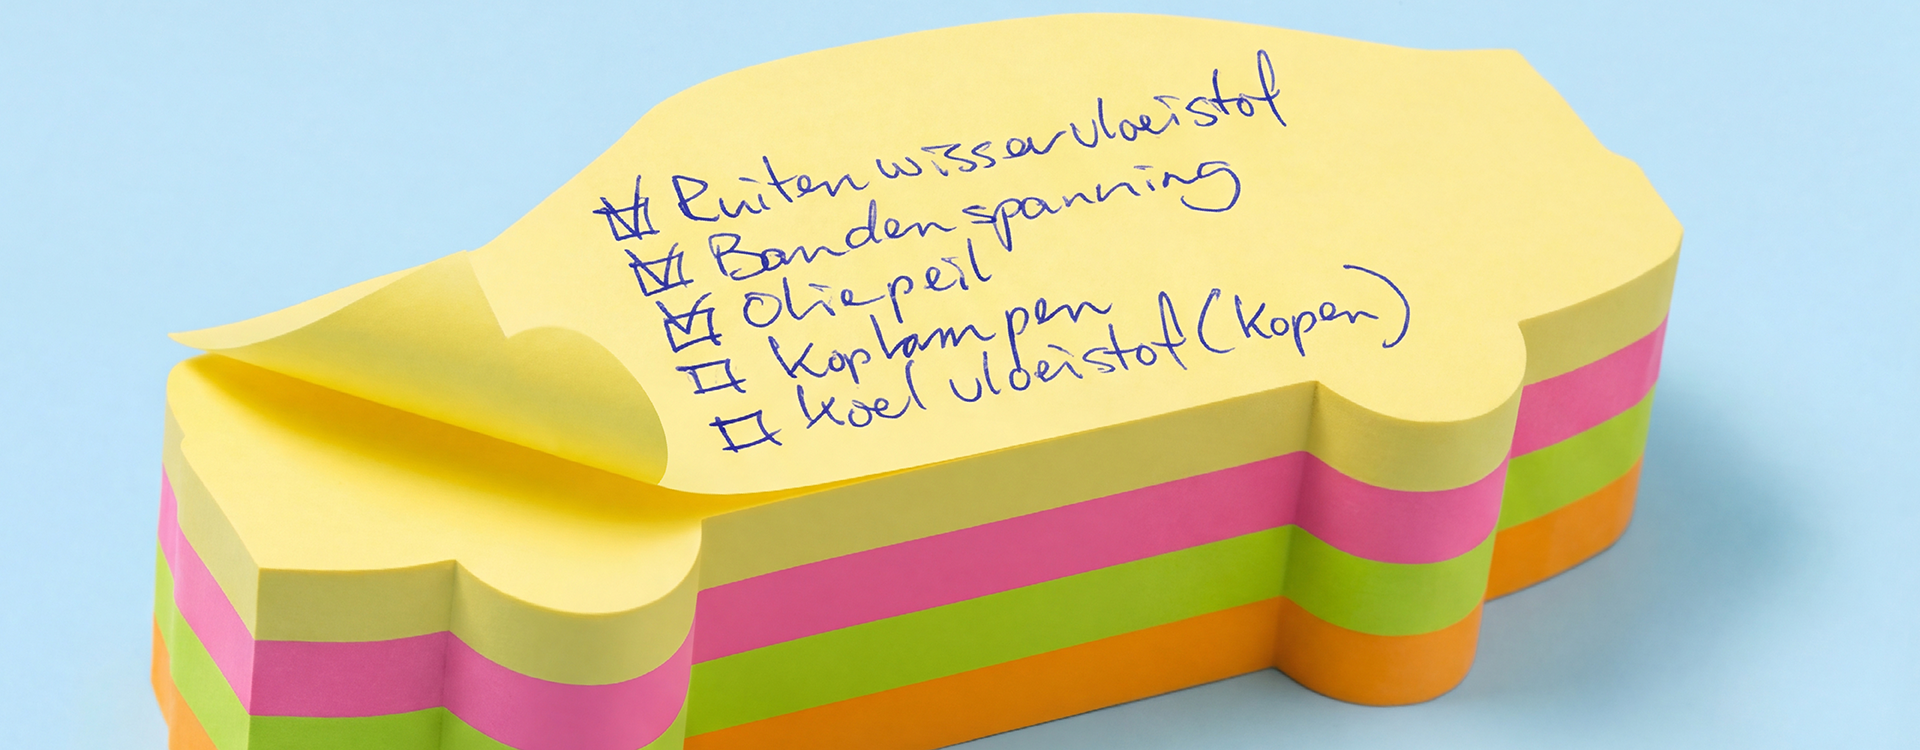 ☑ Ruitenwisservloeistof
☑ Bandenspanning
☑ Oliepeil
☐ Koplampen
☐ Koelvloeistof (kopen)